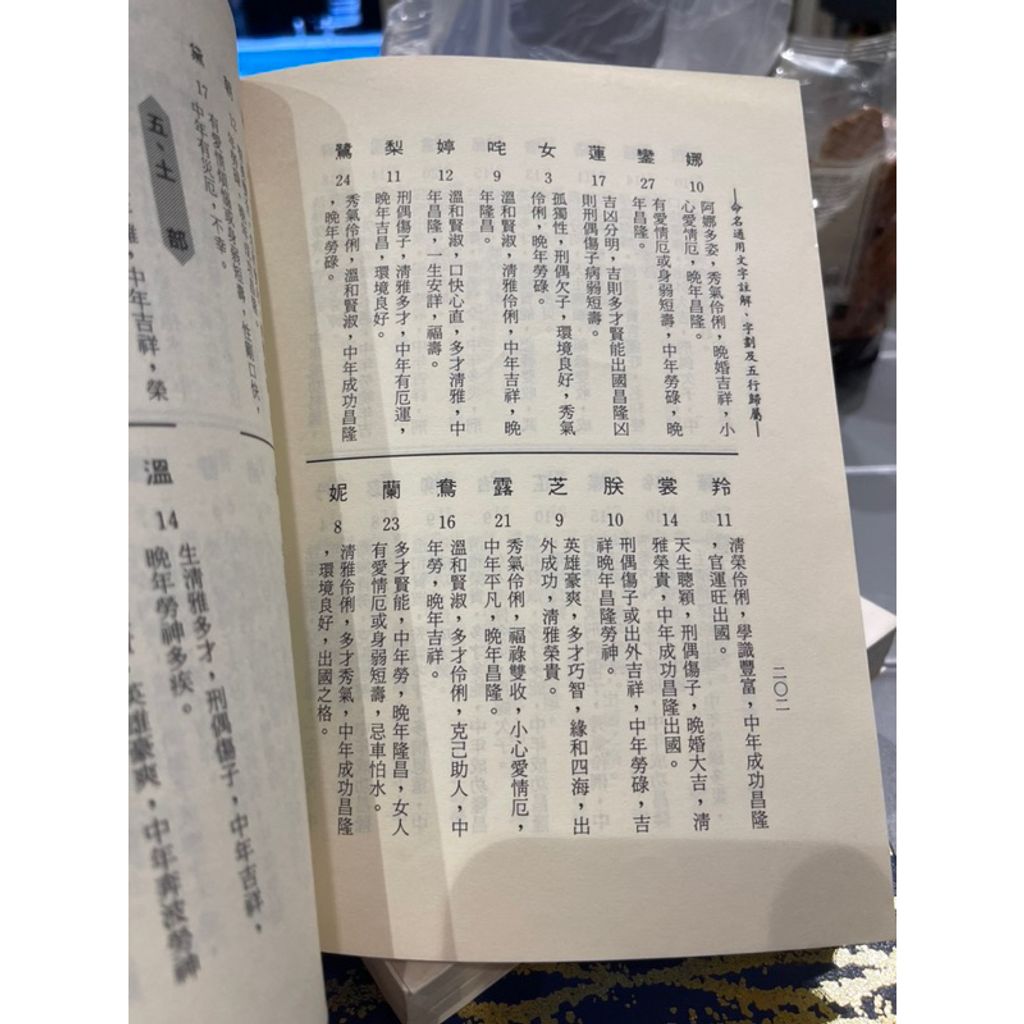 —命名通用文字註解、字劃及五行歸屬—
二〇二
娜 10 阿娜多姿，秀氣伶俐，晚婚吉祥，小
心愛情厄，晚年昌隆。
鑾 27 有愛情厄或身弱短壽，中年勞碌，晚
年昌隆。
蓮 17 吉凶分明，吉則多才賢能出國昌隆凶
則刑偶傷子病弱短壽。
女 3 孤獨性，刑偶欠子，環境良好，秀氣
伶俐，晚年勞碌。
咤 9 溫和賢淑，清雅伶俐，中年吉祥，晚
年隆昌。
婷 12 溫和賢淑，口快心直，多才清雅，中
年昌隆，一生安詳，福壽。
梨 11 刑偶傷子，清雅多才，中年有厄運，
晚年吉昌，環境良好。
鷺 24 秀氣伶俐，溫和賢淑，中年成功昌隆
，晚年勞碌。
羚 11 清榮伶俐，學識豐富，中年成功昌隆
，官運旺出國。
裳 14 天生聰穎，刑偶傷子，晚婚大吉，清
雅榮貴，中年成功昌隆出國。
朕 10 刑偶傷子或出外吉祥，中年勞碌，吉
祥晚年昌隆勞神。
芝 9 英雄豪爽，多才巧智，緣和四海，出
外成功，清雅榮貴。
露 21 秀氣伶俐，福祿雙收，小心愛情厄，
中年平凡，晚年昌隆。
鴦 16 溫和賢淑，多才伶俐，克己助人，中
年勞，晚年吉祥。
蘭 23 多才賢能，中年勞，晚年隆昌，女人
有愛情厄或身弱短壽，忌車怕水。
妮 8 清雅伶俐，多才秀氣，中年成功昌隆
，環境良好，出國之格。
12
性剛口快，
黛 17 有愛情煩惱或身弱短壽，
中年有災厄，不幸。
五、土部
中年吉祥，榮
生清雅多才，刑偶傷子，中年吉祥，
溫 14 晚年勞神多疾。
英雄豪爽，中年奔波勞神